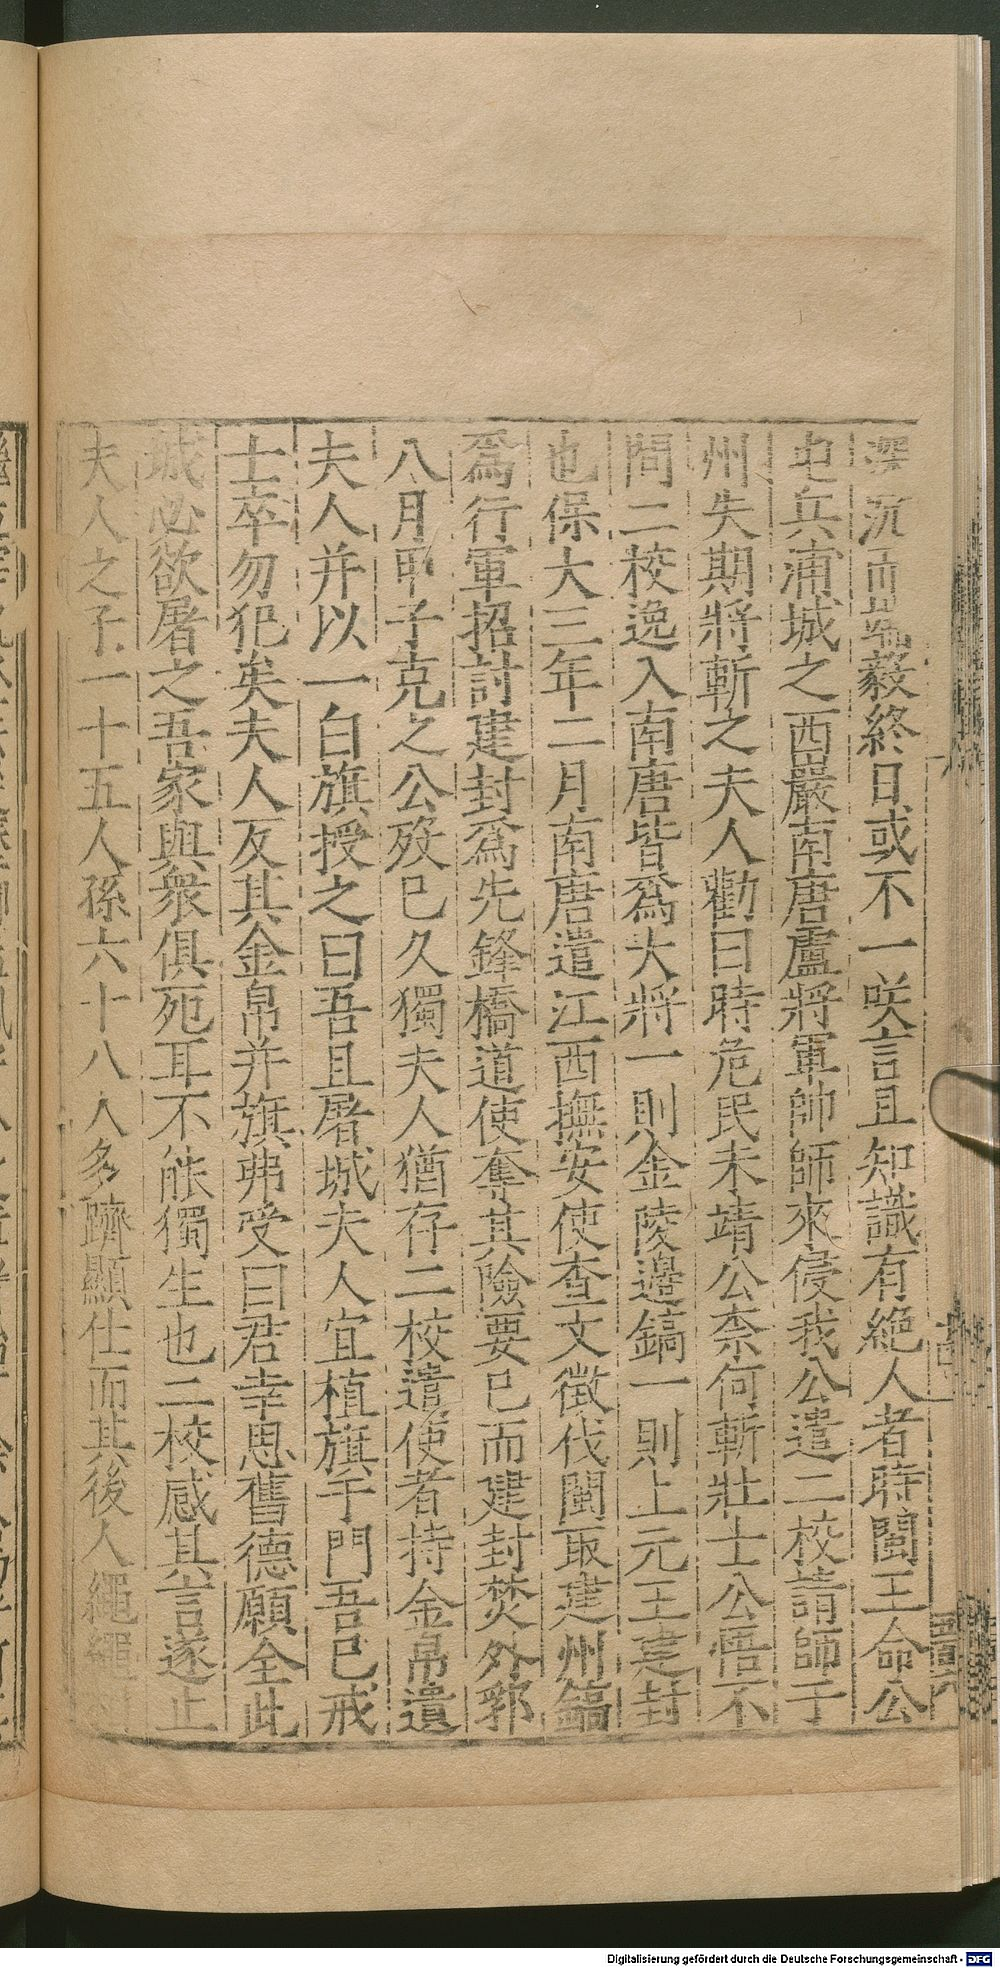 深沉而端毅終日或不一咲言且知識有絶人者時閩王命公
史兵浦城之西巖南唐盧將軍帥師來侵我公遣二校請師于
州失期將斬之夫人勸曰時危民未靖公柰何斬壯士公悟不
問二校逸入南唐皆爲大將一則金陵邊鎬一則上元王建封
也保大三年二月南唐遣江西撫安使查文徵伐閩取建州鎬
爲行軍招討建封爲先鋒橋道使奪其險要已而建封焚外郛
八月甲子克之公歿已久獨夫人猶存二校遣使者持金帛遺
夫人并以一白旗授之曰吾且屠城夫人宜植旗于門吾已戒
士卒勿犯矣夫人反其金帛并旗弗受曰君幸思舊德願全此
城必欲屠之吾家與衆俱死耳不能獨生也二校感其言遂止
夫人之子一十五人孫六十八人多躋顯仕而其後人繩繩
Digitalisierung gefördert durch die Deutsche Forschungsgemeinschaft - DFG